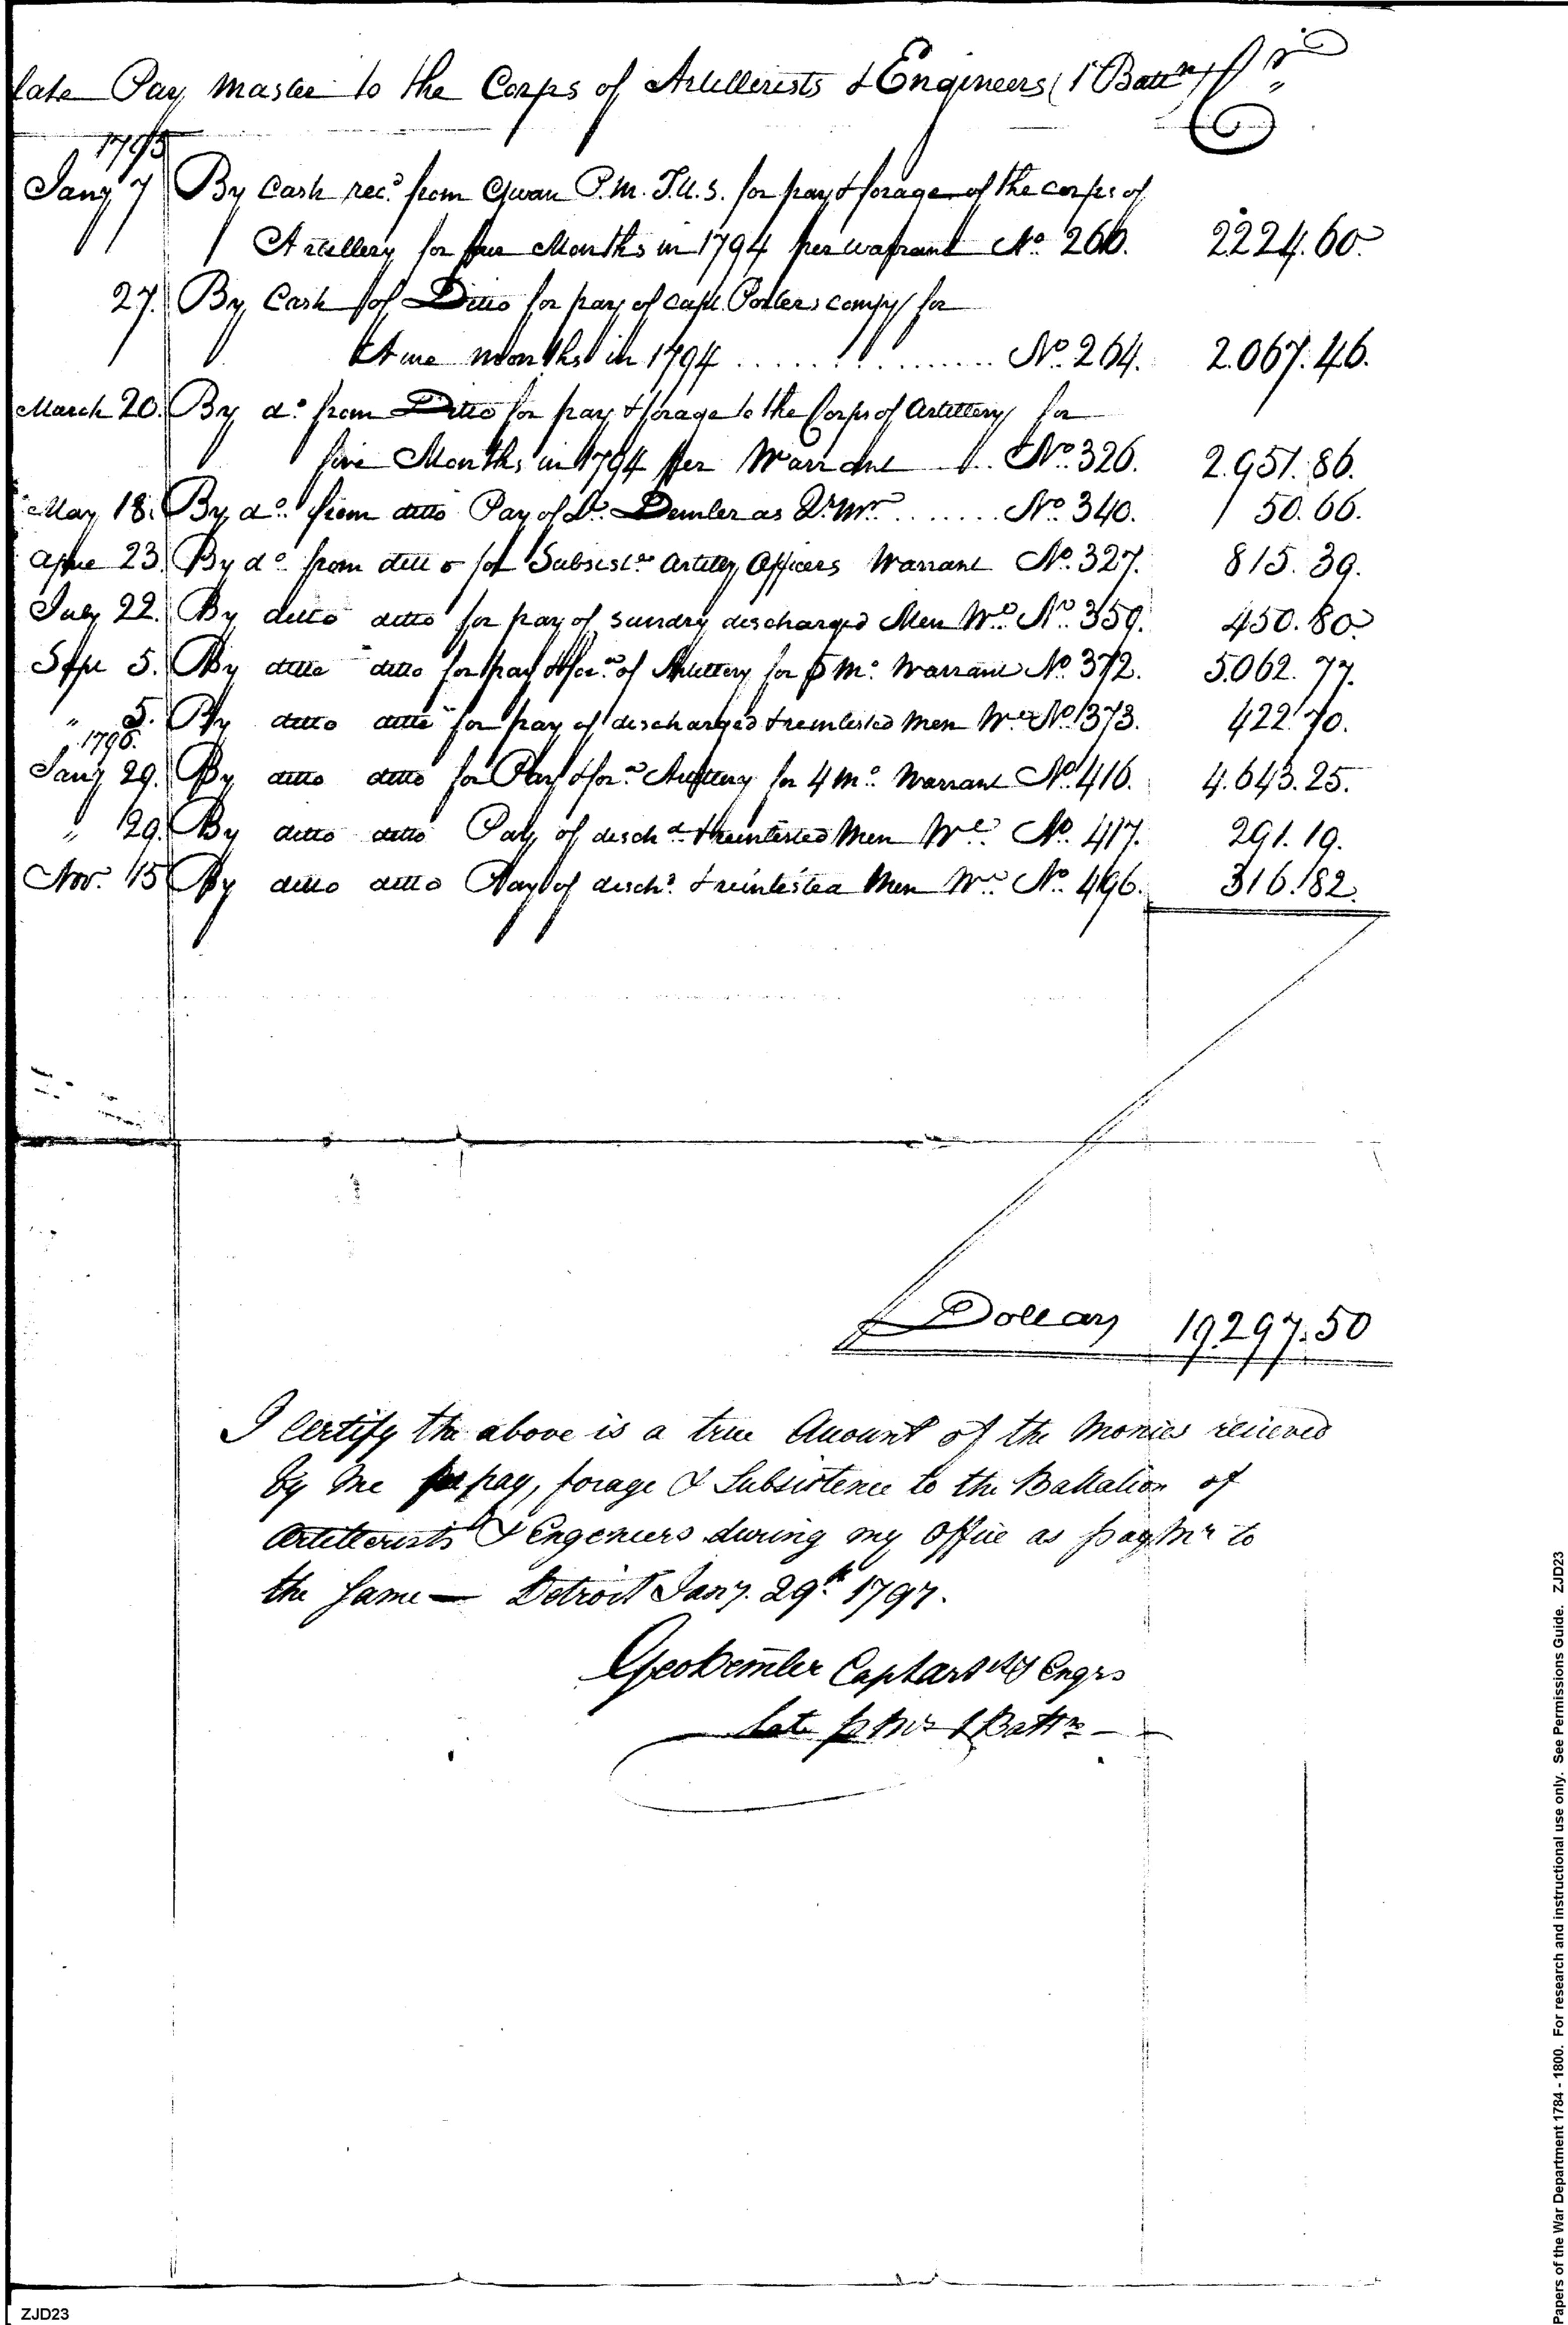 late Pay Master to the Corps of Artillerists & Engineers (1 Battn) Cr
1795
Jany 7 By Cash recd. from Swan P.M.T.U.S. for pay & forage of the corps of
Artillery for Months in 1794 per warrant No. 260. 2224.60
27. By Cash of Ditto for pay of capt. Porters compy for
months in 1794 ........ No. 264. 2.067.46.
March 20. By do. from Ditto for pay & forage to the Corps of Artillery for
five Months in 1794 per Warrant .. No. 326. 2.951.86.
May 18. By do. from ditto Pay of Lt. Demler as Qr. Mr. ....... No. 340. 50.66.
Aprie 23. By do. from ditto for Subsistce Artillery Officers Warrant No. 327. 815.39.
July 22. By ditto ditto for pay of sundry discharged Men Wt. No. 359. 450.80.
Sept 5. By ditto ditto for pay & for. of Artillery for 5 Mo. Warrant No. 372. 5.062.77.
" 5. By ditto ditto for pay of discharged & reinlisted men Wt. No. 373. 422.70.
1796.
Jany 29. By ditto ditto for Pay & for. Artillery for 4 Mo. Warrant No. 416. 4.643.25.
" 29. By ditto ditto Pay of dischd. & reinlisted Men Wt. No. 417. 291.19.
Nov. 15 By ditto ditto Pay of dischd. & reinlisted Men Wt. No. 496. 316.82.
Dollars 19.297.50
I Certify the above is a true Account of the Monies recieved
by Me for pay, forage & Subsistence to the Battalion of
Artillerists & Engeniers during my Office as pay Mr to
the Same — Detroit Jany. 29th 1797.
Geo Demler Capt Arty & Engrs
late p Mr 1 Battn —
ZJD23
Papers of the War Department 1784 - 1800. For research and instructional use only. See Permissions Guide. ZJD23